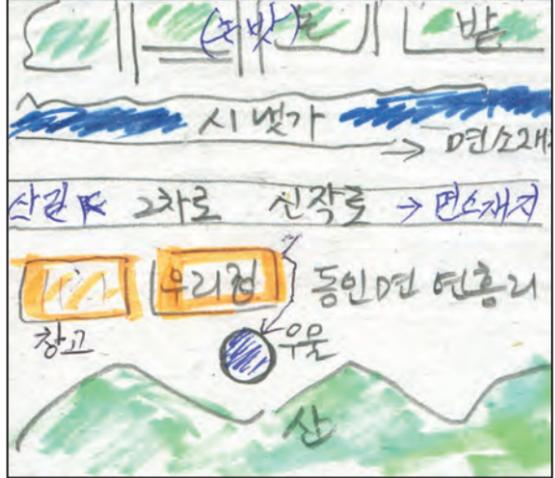 (논밭)논 밭
시냇가
→ 면소재
산길 ↖ 2차로 신작로 → 면소재지
우리집 동인면 연흥리
창고 우물
산